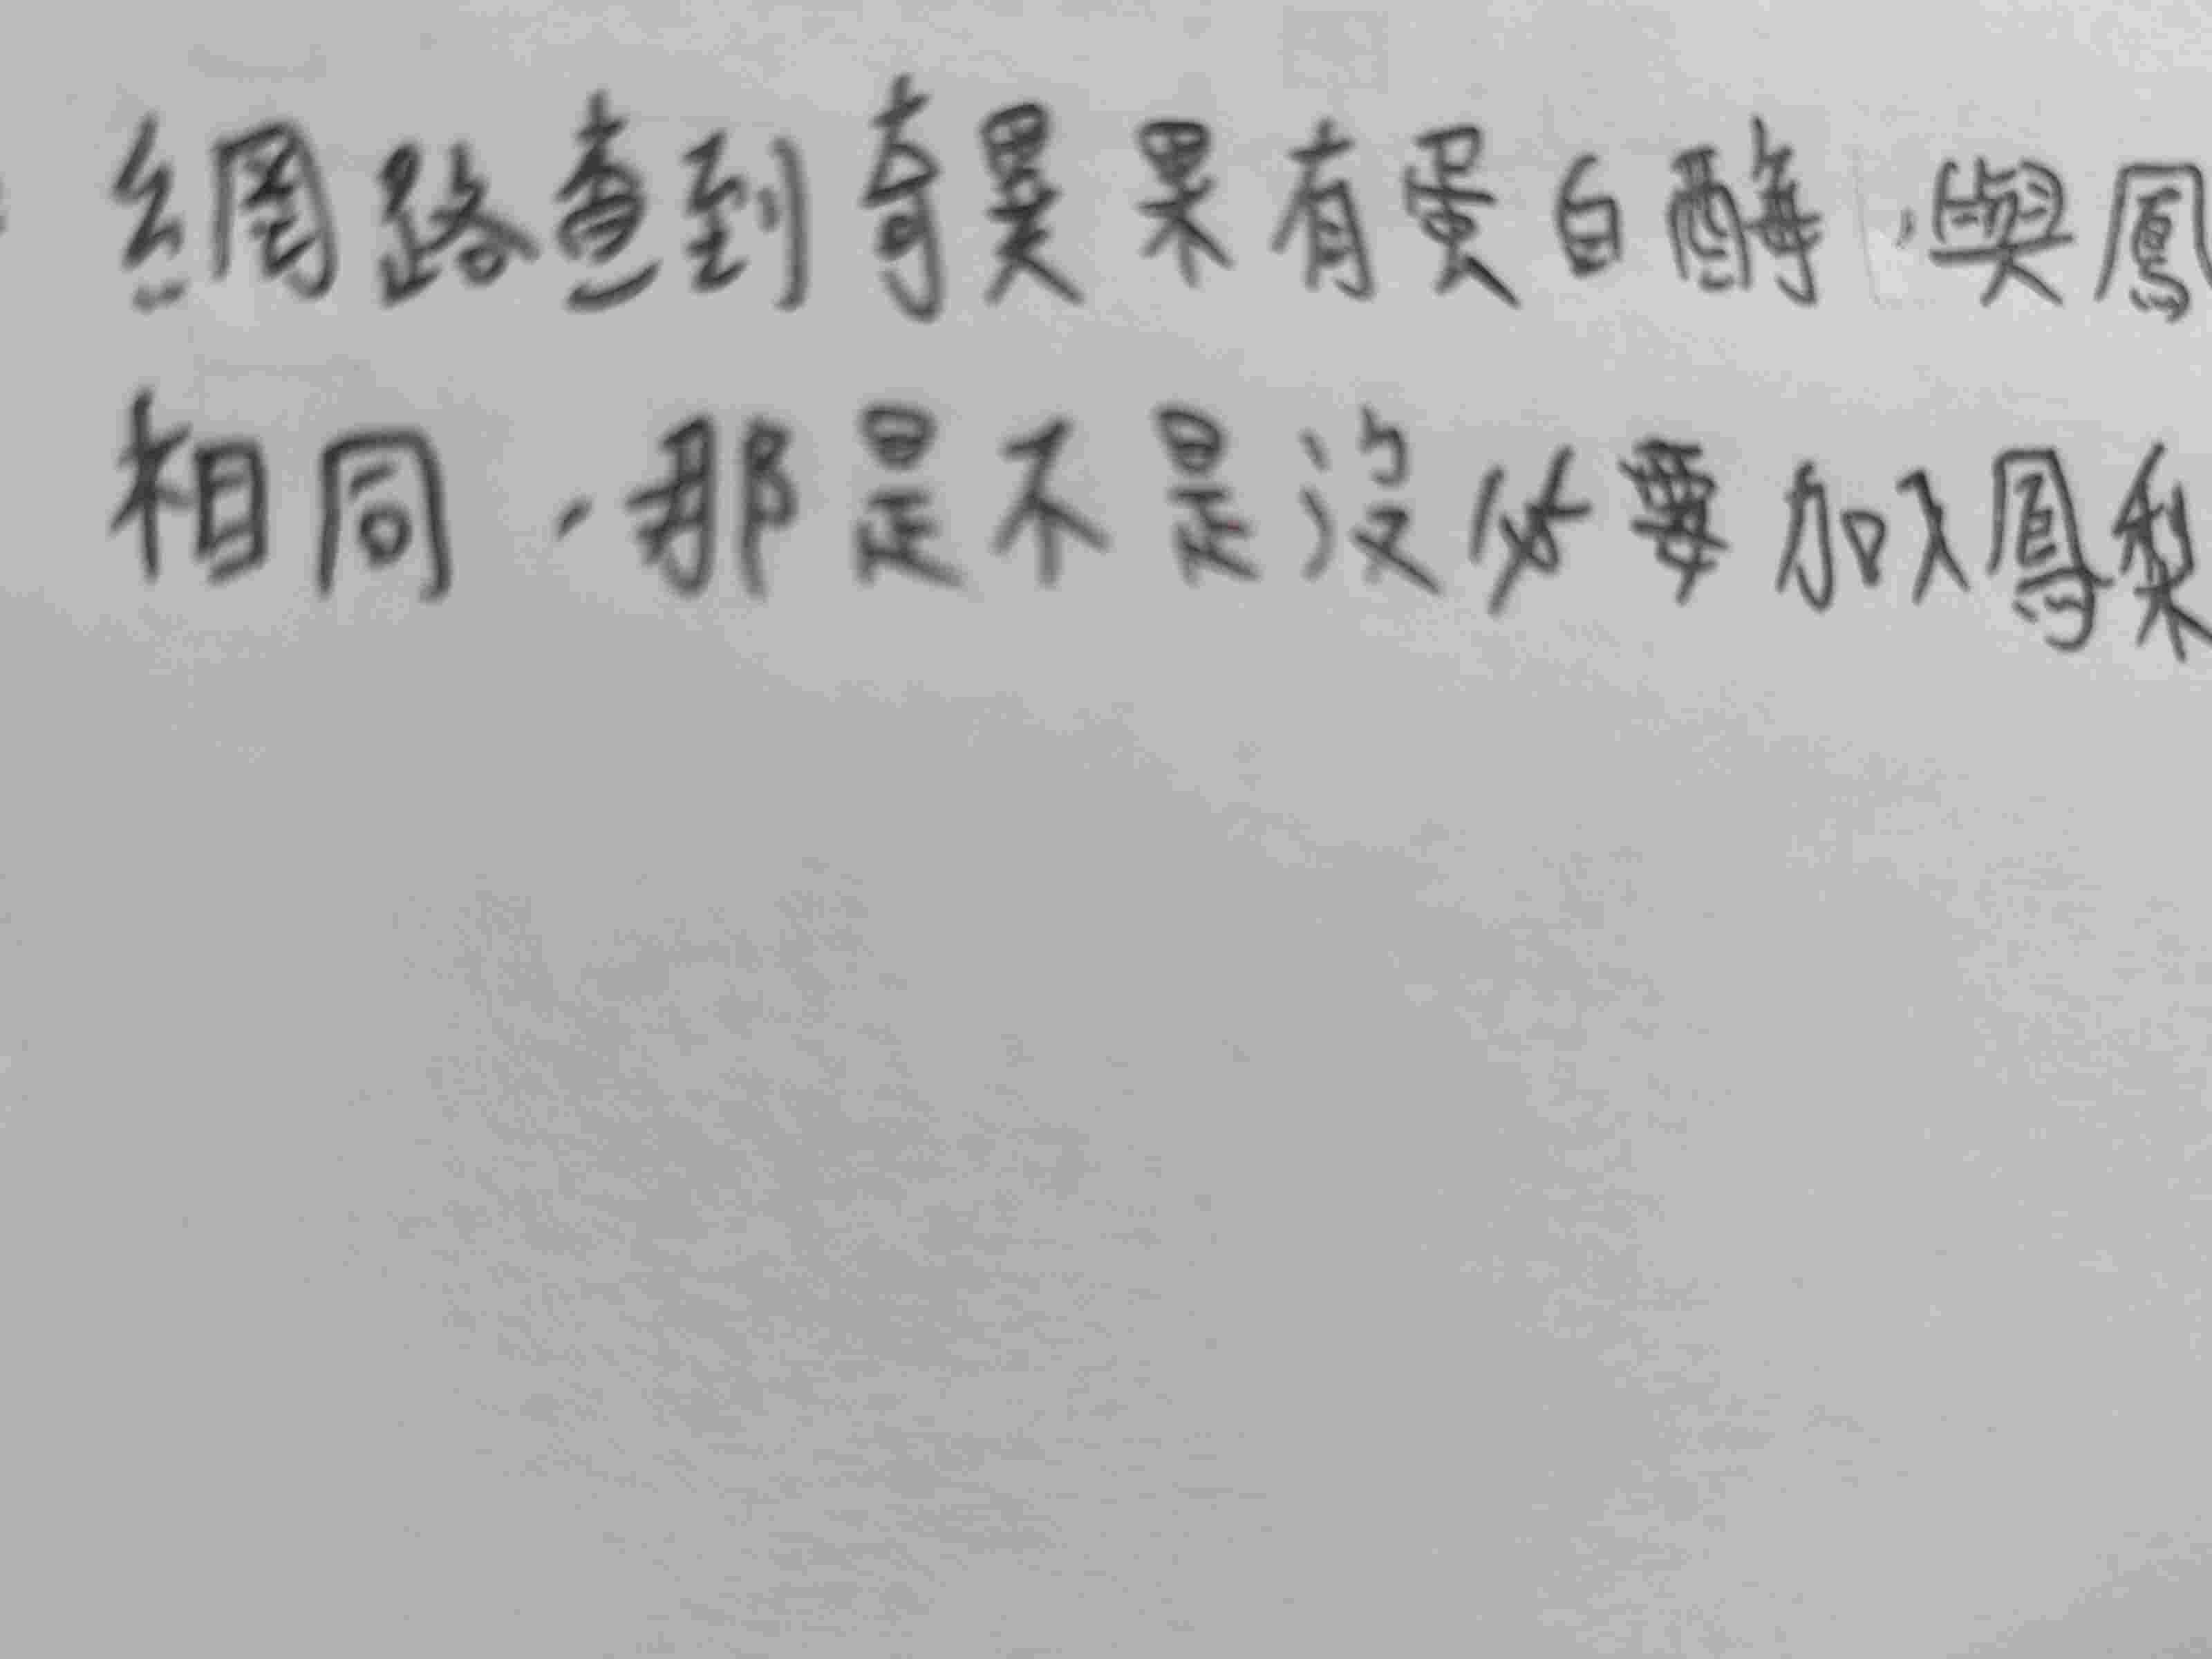 網路查到奇異果有蛋白酶,與鳳
相同,那是不是沒必要加入鳳梨